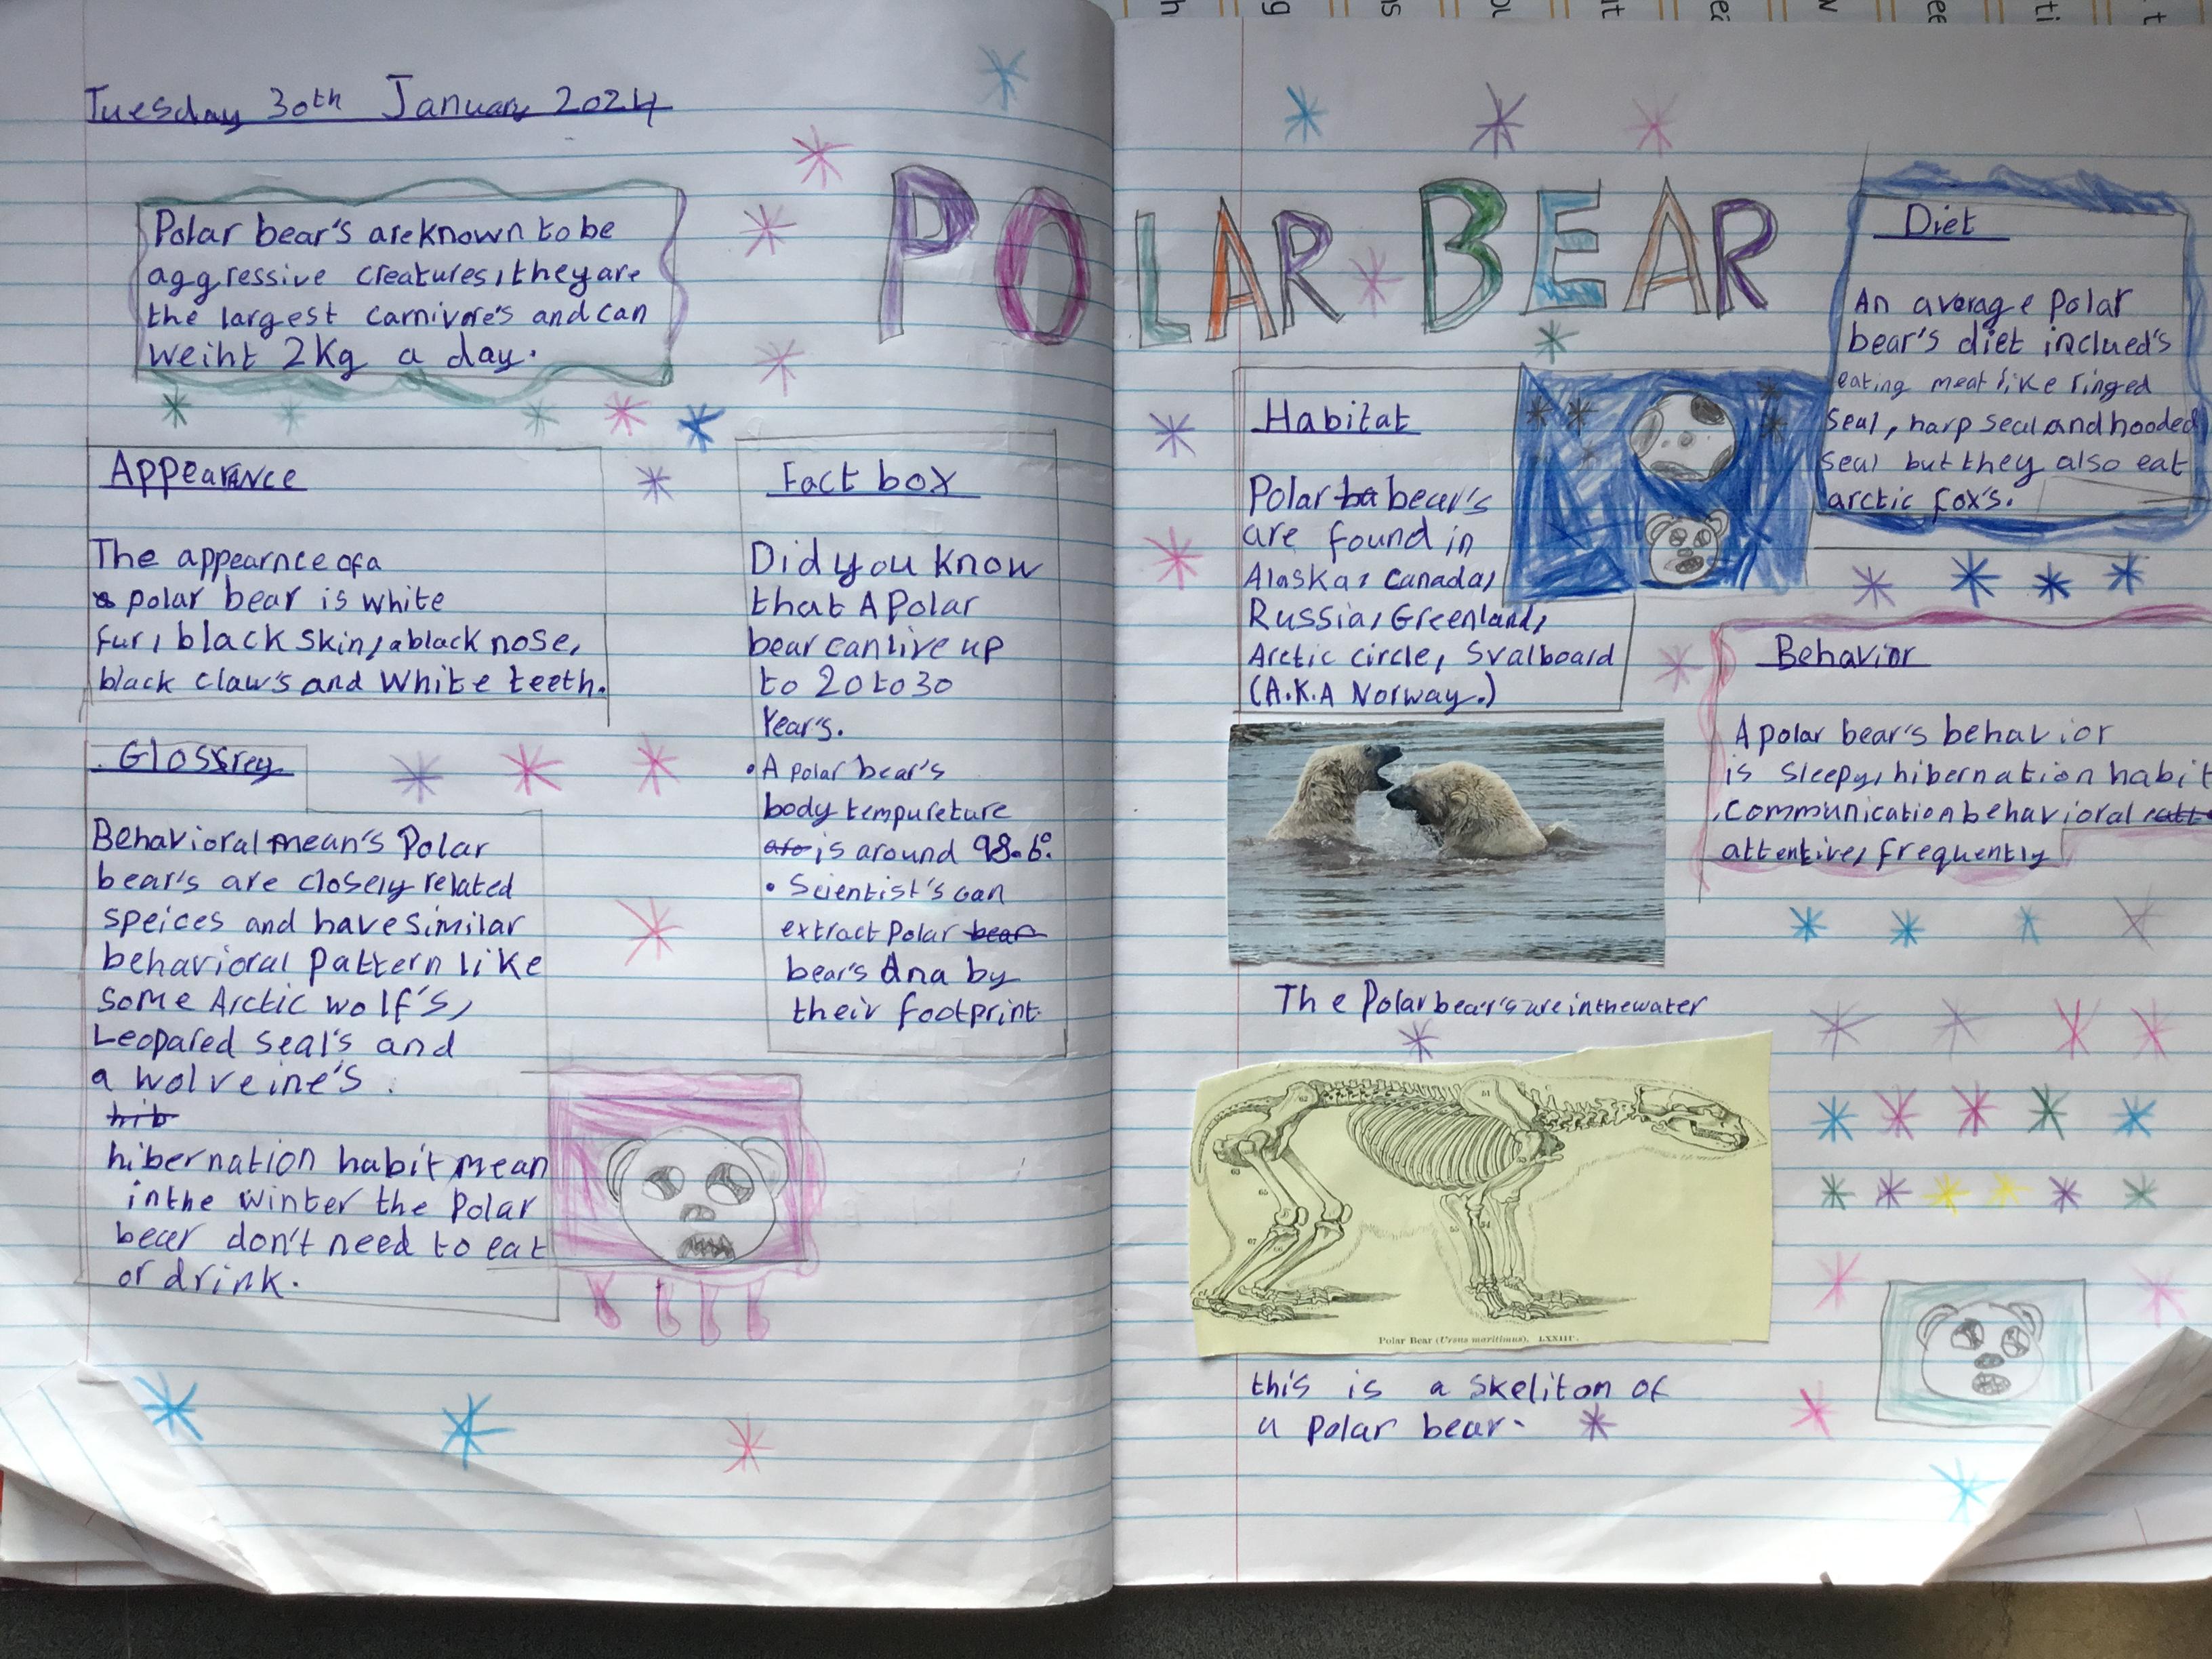 Tuesday 30th January 2024
POLAR BEAR
Polar bear's are known to be
aggressive creatures, they are
the largest carnivore's and can
weiht 2kg a day.
Appearance
The appearnce of a
polar bear is white
fur, black skin, a black nose,
black claw's and white teeth.
Glossrey
Behavioral mean's Polar
bear's are closely related
speices and have similar
behavioral pattern like
some Arctic wolf's,
Leopared seal's and
a wolveine's.
hib
hibernation habit mean
in the winter the Polar
bear don't need to eat
or drink.
Fact box
Did you know
that A Polar
bear can live up
to 20 to 30
Year's.
• A polar bear's
body tempureture
is around 98.6°.
• Scientist's can
extract Polar bear
bear's dna by
their footprint.
Habitat
Polar ba bear's
are found in
Alaska, Canada,
Russia, Greenland,
Arctic circle, Svalboard
(A.K.A Norway.)
The Polar bear's are in the water
62
61
63
65
67
66
53
54
55
Polar Bear (Ursus maritimus). LXXIII.
this is a skeliton of
a polar bear.
Diet
An average Polar
bear's diet inclued's
eating meat like ringed
seal, harp seal and hooded
seal but they also eat
arctic fox's.
Behavior
A polar bear's behavior
is sleepy, hibernation habit
, communication behavioral
attentive, frequently